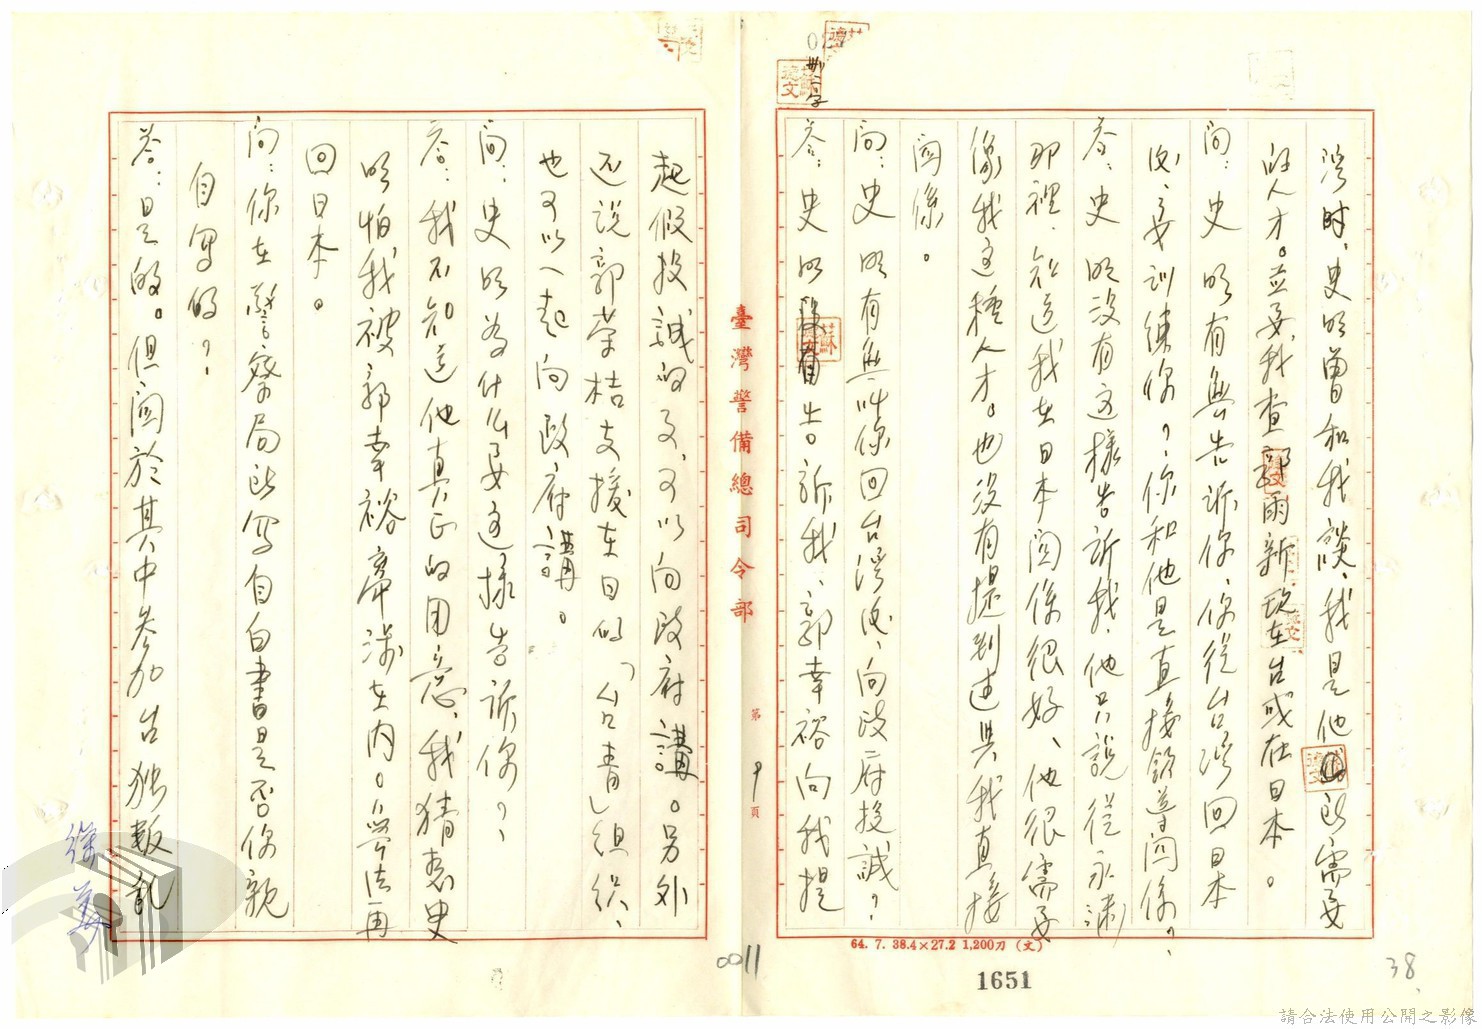 灣時、史明曾和我談、我是他所需要
的人才。並要我查郭雨新現在台或在日本。
問：史明有無告訴你、你從台灣回日本
後、要訓練你？、你和他是直接領導關係？、
答：史明沒有這樣告訴我、他只說從永清
那裡、知道我在日本關係很好、他很需要
像我這種人才。也沒有提到述與我直接
關係。
問：史明有無叫你回台灣後、向政府投誠？、
答：史明告訴我、郭幸裕向我提
起假投誠的文、可以向政府講。另外
还說郭荣桔支援在日的「台青」組织、
也可以一起向政府講。
問：史明為什么要這樣告訴你？、
答：我不知道他真正的用意、我猜想史
明怕我被郭幸裕牽涉在內。無法再
回日本。
問：你在警察局所寫自白書是否你親
自寫的？、
答：是的。但關於其中參加台独叛乱
臺灣警備總司令部
第 9 頁
刪二字
蘇
64. 7. 38.4×27.2 1,200刀 (文)
0011
1651
38
請合法使用公開之影像